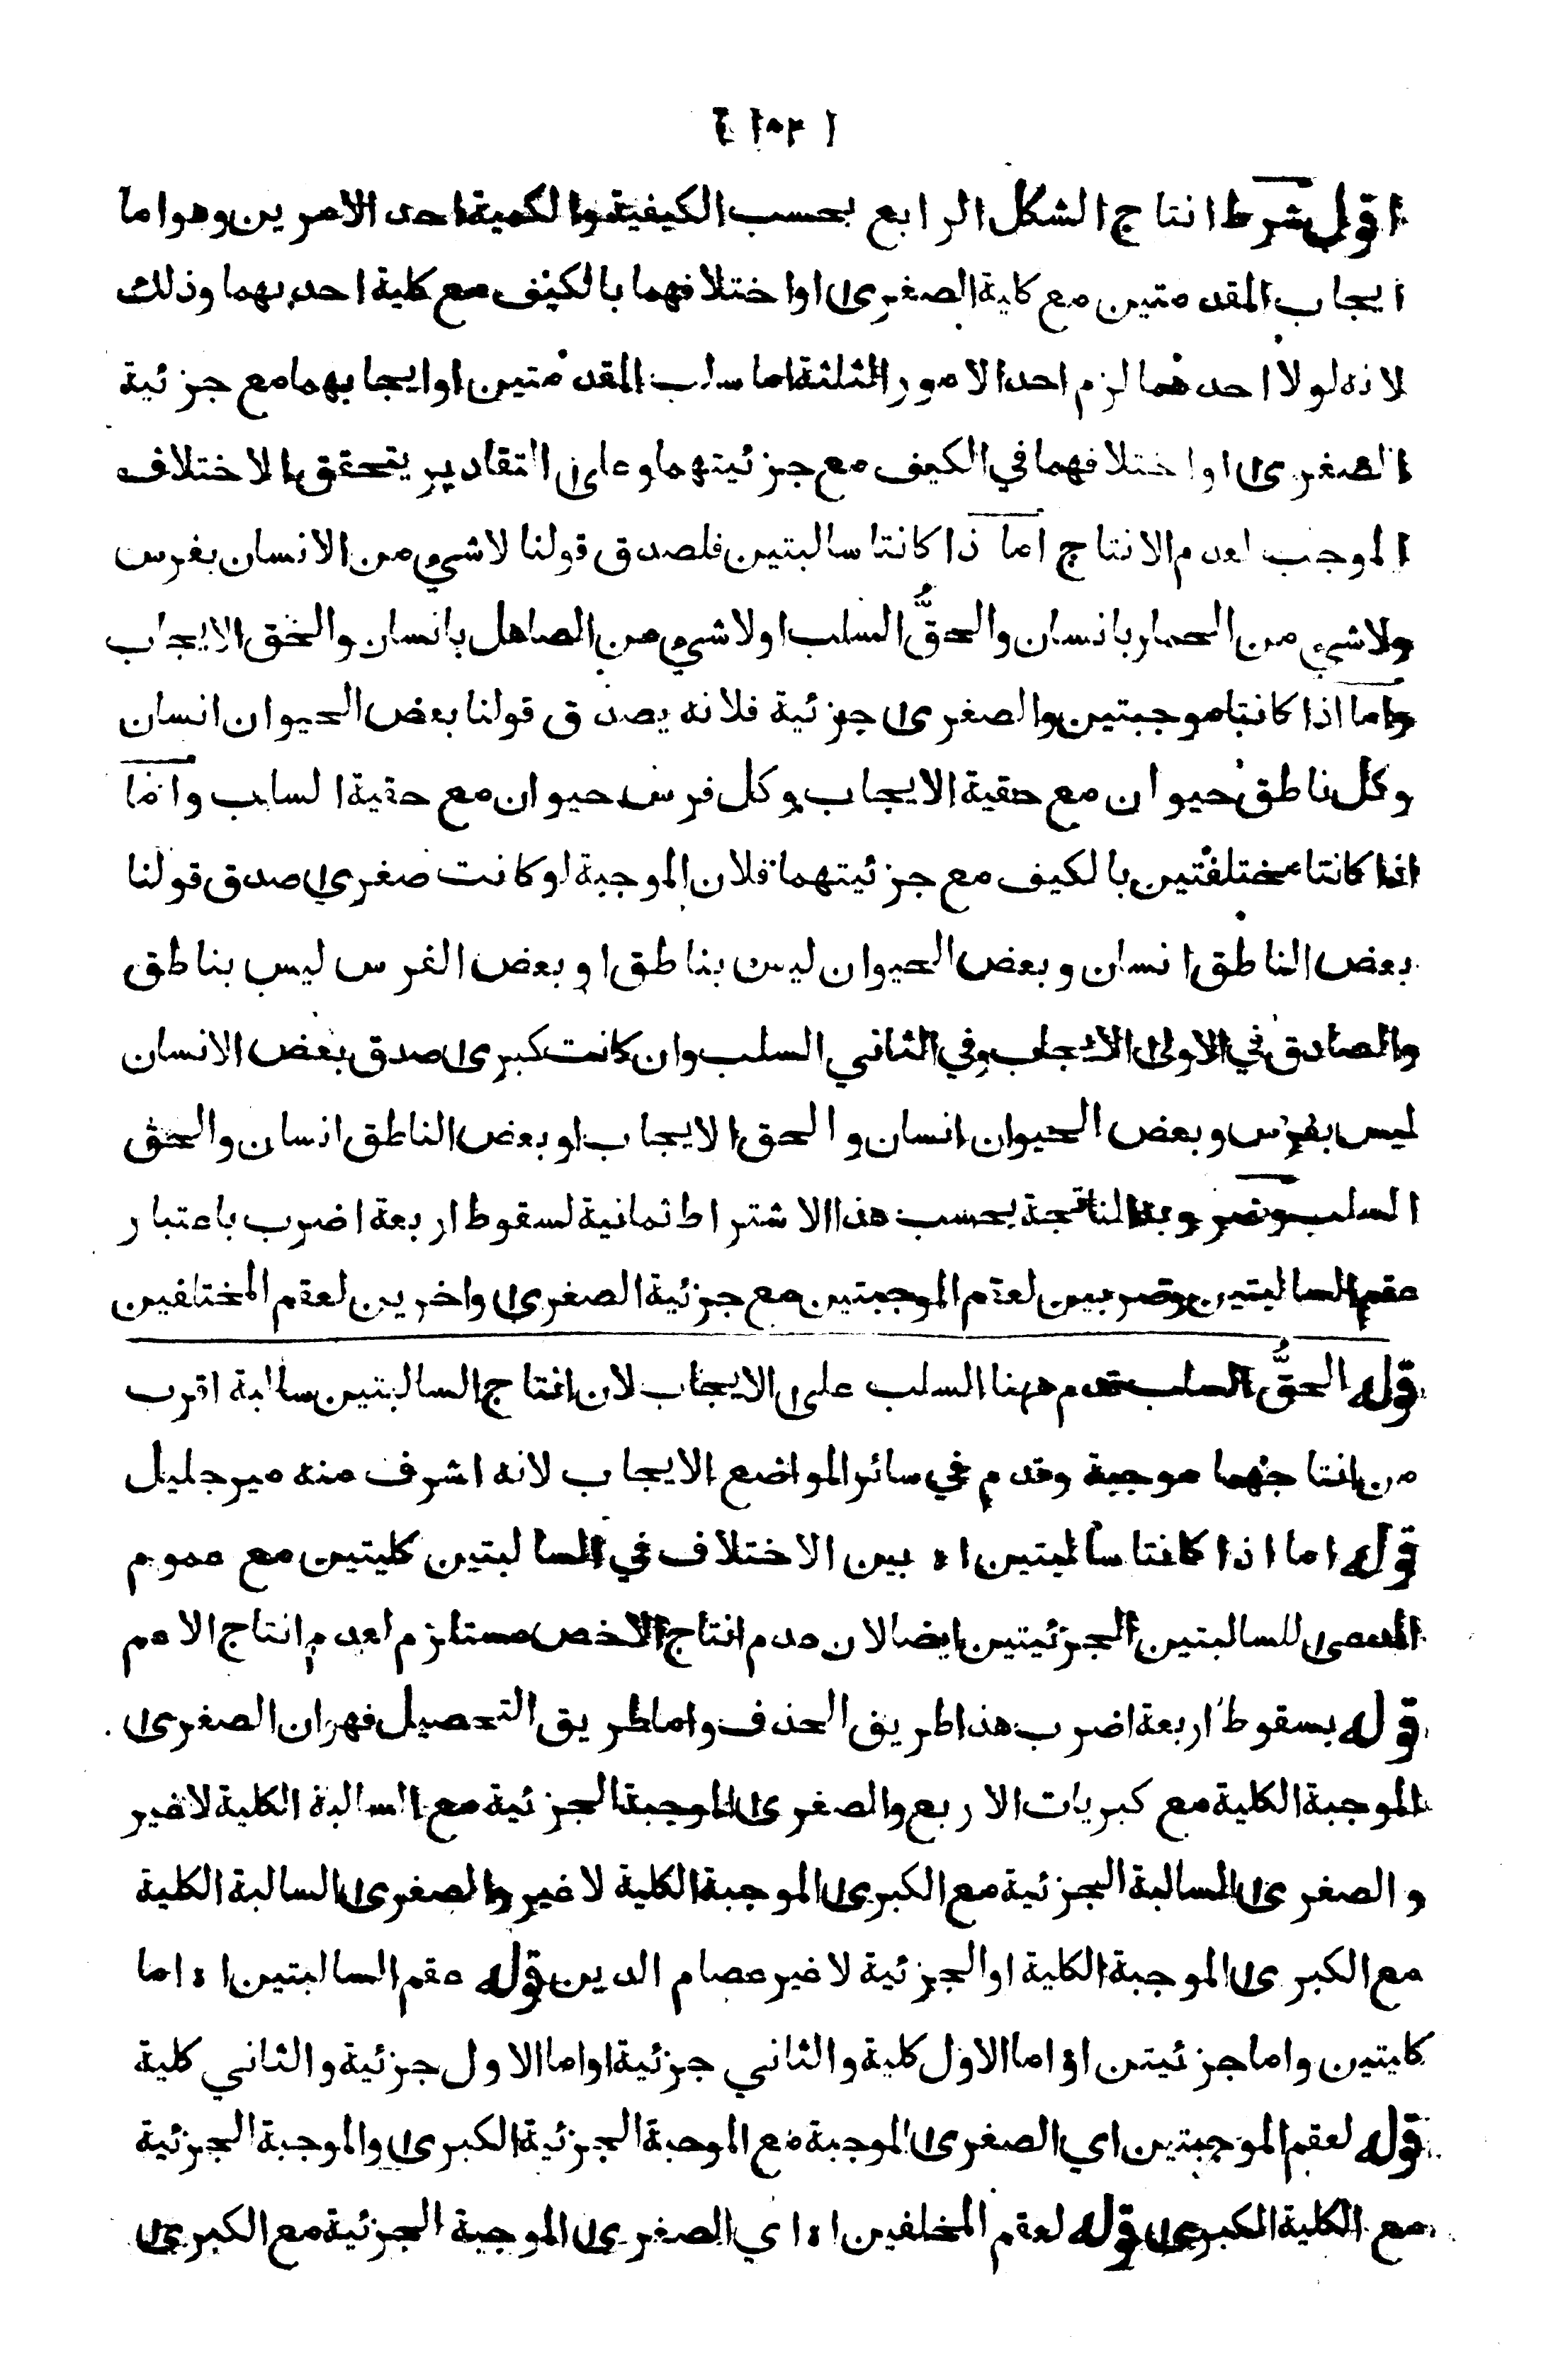 [ ١٥٢ ]
اقول شرط انتاج الشكل الرابع بحسب الكيفية والكمية احد الامرين وهو اما
ايجاب المقدمتين مع كلية الصغرى او اختلافهما بالكيف مع كلية احديهما وذلك
لانه لولا احدهما لزم احد الامور الثلثة اما سلب المقدمتين او ايجابهما مع جزئية
الصغرى او اختلافهما في الكيف مع جزئيتهما وعلى التقادير يتحقق الاختلاف
الموجب لعدم الانتاج اما اذا كانتا سالبتين فلصدق قولنا لاشيء من الانسان بفرس
ولاشيء من الحمار بانسان والحقُّ السلب اولاشيء من الصاهل بانسان والحق الايجاب
واما اذا كانتا موجبتين والصغرى جزئية فلانه يصدق قولنا بعض الحيوان انسان
وكل ناطق حيوان مع حقية الايجاب وكل فرس حيوان مع حقية السلب واما
اذا كانتا مختلفتين بالكيف مع جزئيتهما فلان الموجبة لو كانت صغرى صدق قولنا
بعض الناطق انسان وبعض الحيوان ليس بناطق او بعض الفرس ليس بناطق
والصادق في الاولى الايجاب وفي الثاني السلب وان كانت كبرى صدق بعض الانسان
ليس بفرس وبعض الحيوان انسان والحق الايجاب او بعض الناطق انسان والحق
السلب وضروبه الناتجة بحسب هذا الاشتراط ثمانية لسقوط اربعة اضرب باعتبار
عقم السالبتين وضربين لعقم الموجبتين مع جزئية الصغرى واخرين لعقم المختلفين
قوله الحقُّ السلب تقدم ههنا السلب على الايجاب لان انتاج السالبتين سالبة اقرب
من انتاجهما موجبة وقدم في سائر المواضع الايجاب لانه اشرف منه مير جليل
قوله اما اذا كانتا سالبتين اه بين الاختلاف في السالبتين كليتين مع عموم
المدعى للسالبتين الجزئيتين ايضا لان عدم انتاج الاخص مستلزم لعدم انتاج الاعم
قوله بسقوط اربعة اضرب هذا طريق الحذف واما طريق التحصيل فهو ان الصغرى
الموجبة الكلية مع كبريات الاربع والصغرى الموجبة الجزئية مع السالبة الكلية لاغير
والصغرى السالبة الجزئية مع الكبرى الموجبة الكلية لاغير والصغرى السالبة الكلية
مع الكبرى الموجبة الكلية او الجزئية لاغير عصام الدين قوله عقم السالبتين اه اما
كليتين واما جزئيتن او اما الاول كلية والثاني جزئية او اما الاول جزئية والثاني كلية
قوله لعقم الموجبتين اي الصغرى الموجبة مع الموجبة الجزئية الكبرى والموجبة الجزئية
مع الكلية الكبرى قوله لعقم المخلفين اه اي الصغرى الموجبة الجزئية مع الكبرى